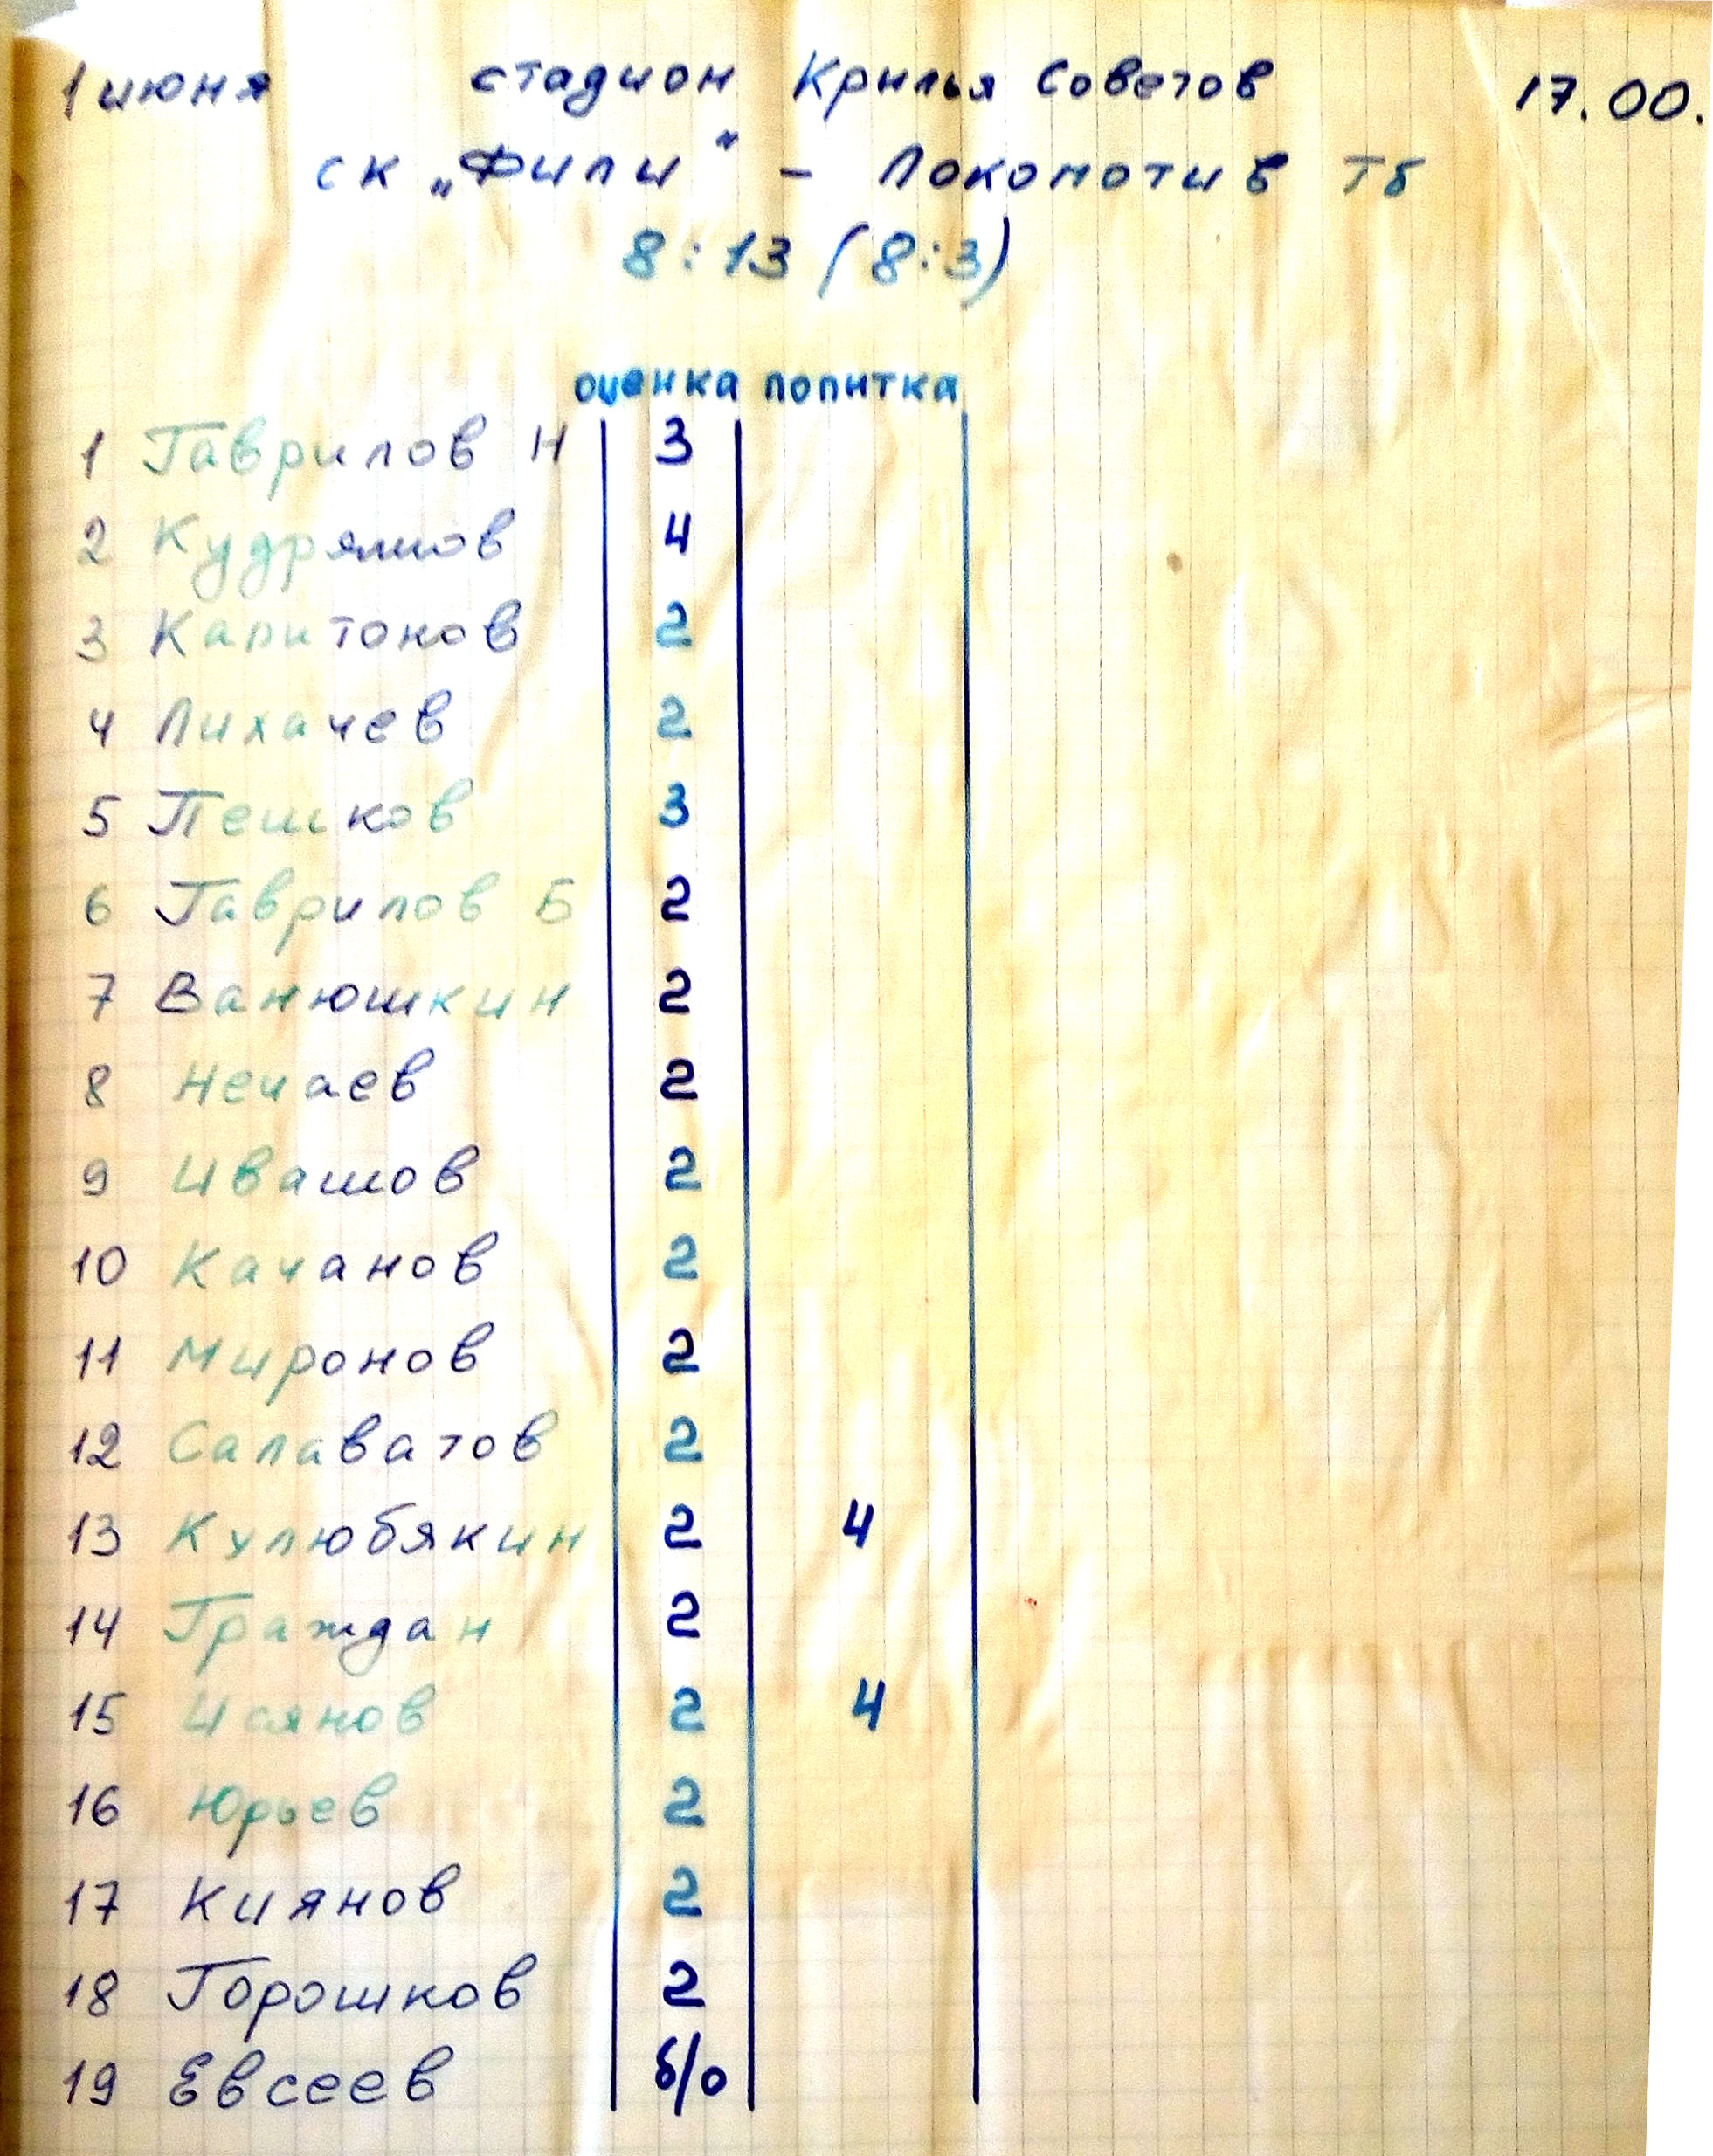 1 июня стадион Крилья Советов 17.00.
ск „Фили" - Локомотив Тб
8:13 (8:3)
оценка попитка
1 Гаврилов Н 3
2 Кудряшов 4
3 Капитонов 2
4 Лихачев 2
5 Пешков 3
6 Гаврилов Б 2
7 Ванюшкин 2
8 Нечаев 2
9 Ивашов 2
10 Качанов 2
11 Миронов 2
12 Салаватов 2
13 Кулюбякин 2 4
14 Граждан 2
15 Исянов 2 4
16 Юрьев 2
17 Киянов 2
18 Горошков 2
19 Евсеев б/о